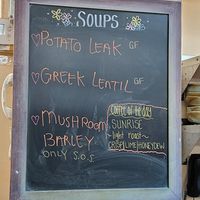 SOUPS
POTATO LEAK GF
GREEK LENTIL GF
MUSHROOM
BARLEY
ONLY S.O.S.
COFFEE of the day
SUNRISE
~light roast~
CRISP/LIME/HONEYDEW